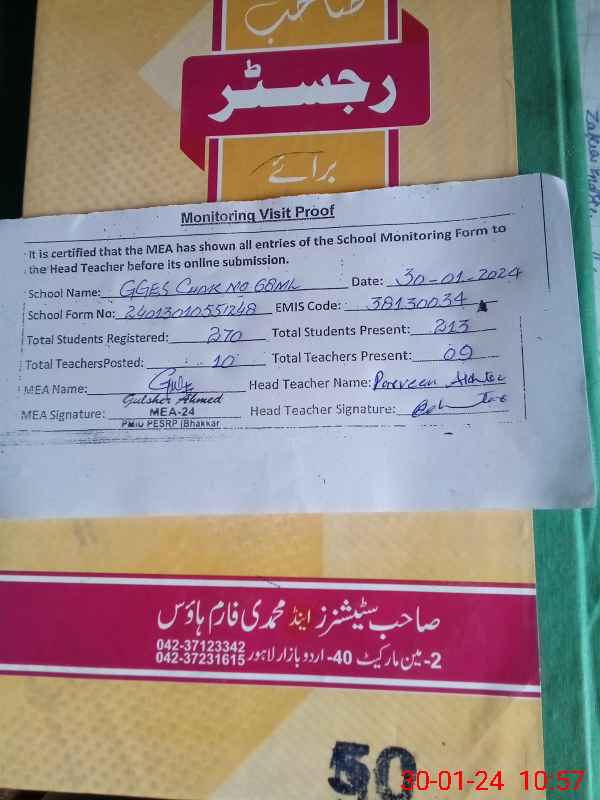 صاحب
رجسٹر
برائے
Monitoring Visit Proof
It is certified that the MEA has shown all entries of the School Monitoring Form to
the Head Teacher before its online submission.
School Name: GGES Chak No 68ML Date: 30-01-2024
School Form No: 24013010551248 EMIS Code: 38130034
Total Students Registered: 270 Total Students Present: 213
Total TeachersPosted: 10 Total Teachers Present: 09
MEA Name: Head Teacher Name: Parveen Akhtar
Gulsher Ahmed
MEA Signature: MEA-24 Head Teacher Signature:
PMIU PESRP (Bhakkar
صاحب سٹیشنرز اینڈ محمدی فارم ہاؤس
2- مین مارکیٹ 40- اردو بازار لاہور 042-37123342
042-37231615
50
30-01-24 10:57